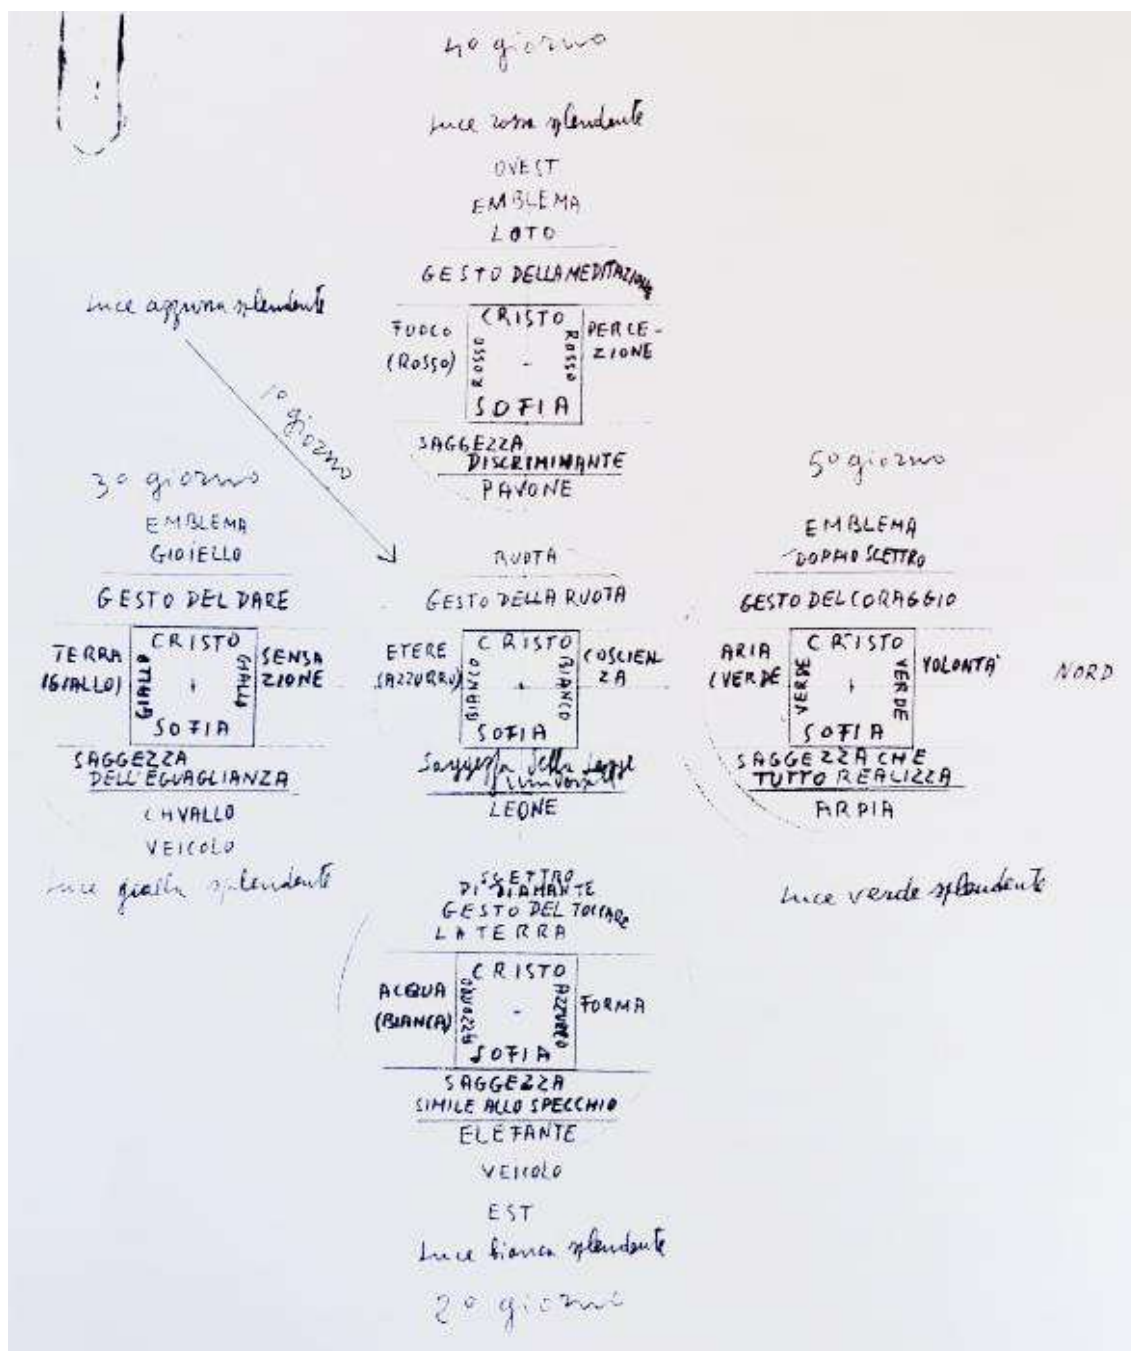 4º giorno
Luce rossa splendente
OVEST
EMBLEMA
LOTO
GESTO DELLA MEDITAZIONE
FUOCO
(ROSSO)
CRISTO
ROSSO
ROSSO
SOFIA
PERCE-
ZIONE
SAGGEZZA
DISCRIMINANTE
PAVONE
Luce azzurra splendente
1º giorno
3º giorno
EMBLEMA
GIOIELLO
GESTO DEL DARE
TERRA
(GIALLO)
CRISTO
GIALLO
GIALLO
SOFIA
SENSA
ZIONE
SAGGEZZA
DELL'EGUAGLIANZA
CAVALLO
VEICOLO
Luce gialla splendente
RUOTA
GESTO DELLA RUOTA
ETERE
(AZZURRO)
CRISTO
BIANCO
BIANCO
SOFIA
COSCIEN
ZA
Saggezza della Legge
Universale
LEONE
5º giorno
EMBLEMA
DOPPIO SCETTRO
GESTO DEL CORAGGIO
ARIA
(VERDE
CRISTO
VERDE
VERDE
SOFIA
VOLONTÀ
NORD
SAGGEZZA CHE
TUTTO REALIZZA
ARPIA
Luce verde splendente
SCETTRO
DI DIAMANTE
GESTO DEL TOCCARE
LA TERRA
ACQUA
(BIANCA)
CRISTO
AZZURRO
AZZURRO
SOFIA
FORMA
SAGGEZZA
SIMILE ALLO SPECCHIO
ELEFANTE
VEICOLO
EST
Luce bianca splendente
2º giorno